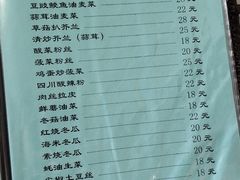 豆豉鲮鱼油麦菜 28 元
蒜茸油麦菜 22 元
草菇扒芥兰 28 元
清炒芥兰（蒜茸） 25 元
酸菜粉丝 18 元
菠菜粉丝 20 元
鸡蛋炒菠菜 22 元
四川酸辣粉 22 元
肉丝拉皮 18 元
鲜蘑油菜 18 元
冬菇油菜 22 元
红烧冬瓜 20 元
海米冬瓜 20 元
素烧冬瓜 18 元
蚝油生菜 18 元
土豆丝 18 元